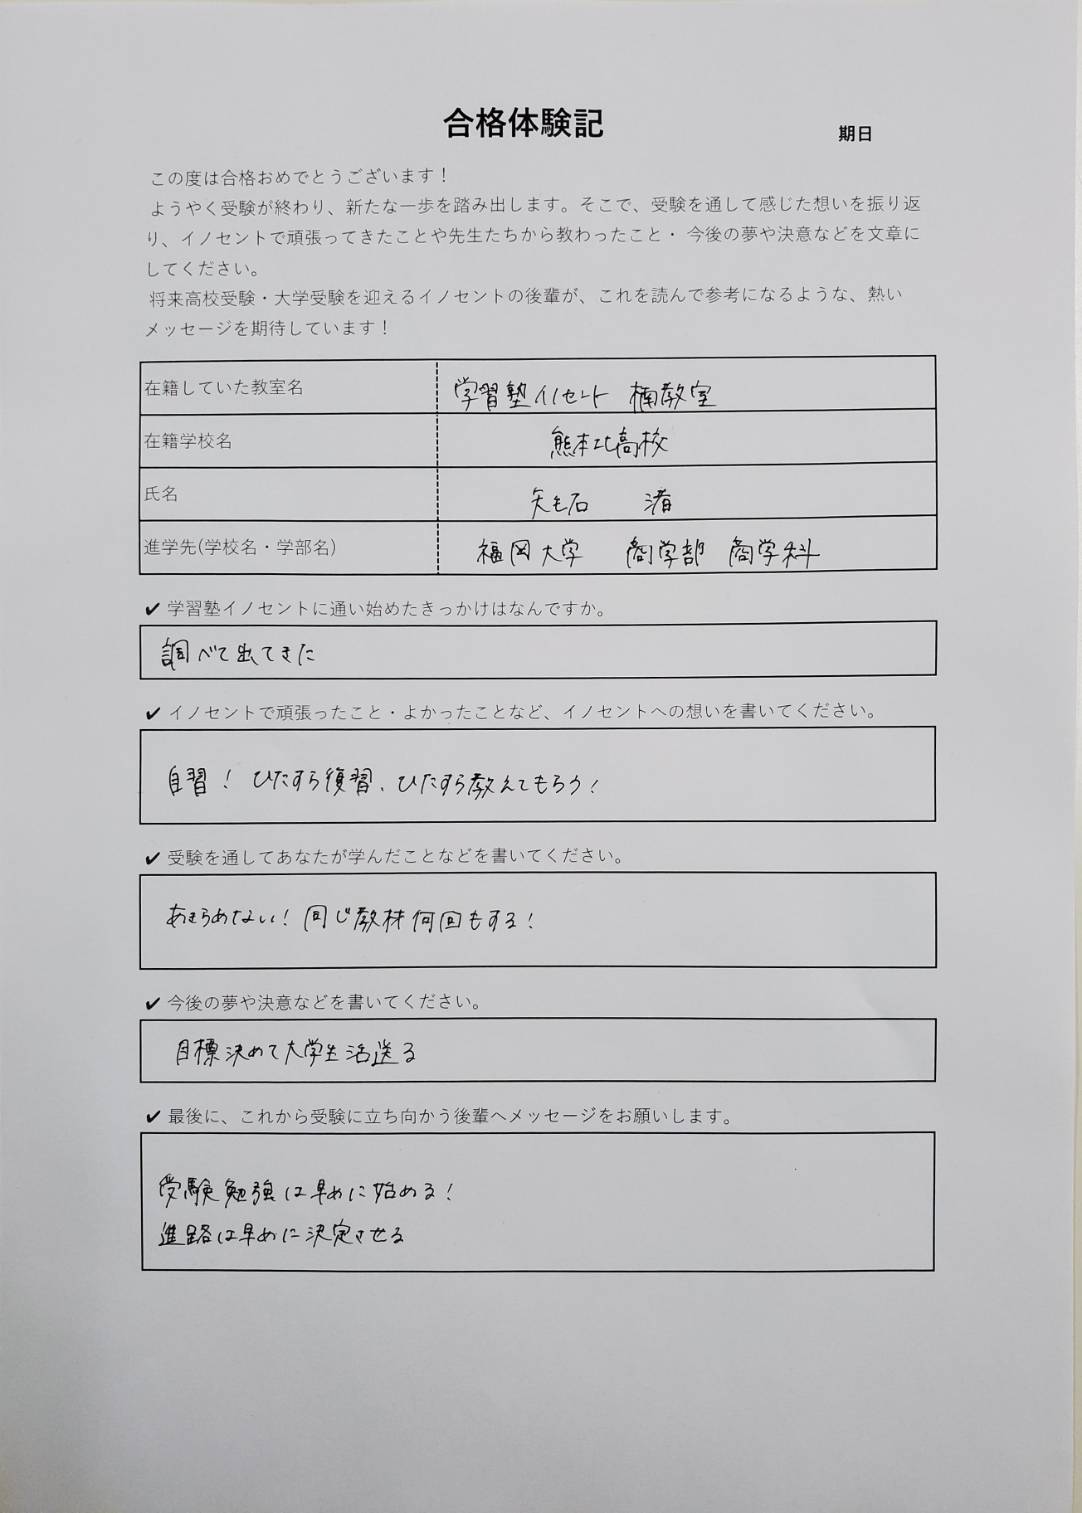 合格体験記
期日
この度は合格おめでとうございます！
ようやく受験が終わり、新たな一歩を踏み出します。そこで、受験を通して感じた想いを振り返
り、イノセントで頑張ってきたことや先生たちから教わったこと・ 今後の夢や決意などを文章に
してください。
将来高校受験・大学受験を迎えるイノセントの後輩が、これを読んで参考になるような、熱い
メッセージを期待しています！
在籍していた教室名 学習塾イノセント 楠教室
在籍学校名 熊本北高校
氏名 矢毛石 渚
進学先(学校名・学部名) 福岡大学 商学部 商学科
✔ 学習塾イノセントに通い始めたきっかけはなんですか。
調べて出てきた
✔ イノセントで頑張ったこと・よかったことなど、イノセントへの想いを書いてください。
自習！ひたすら復習、ひたすら教えてもらう！
✔ 受験を通してあなたが学んだことなどを書いてください。
あきらめない！同じ教材何回もする！
✔ 今後の夢や決意などを書いてください。
目標決めて大学生活送る
✔ 最後に、これから受験に立ち向かう後輩へメッセージをお願いします。
受験勉強は早めに始める！
進路は早めに決定させる